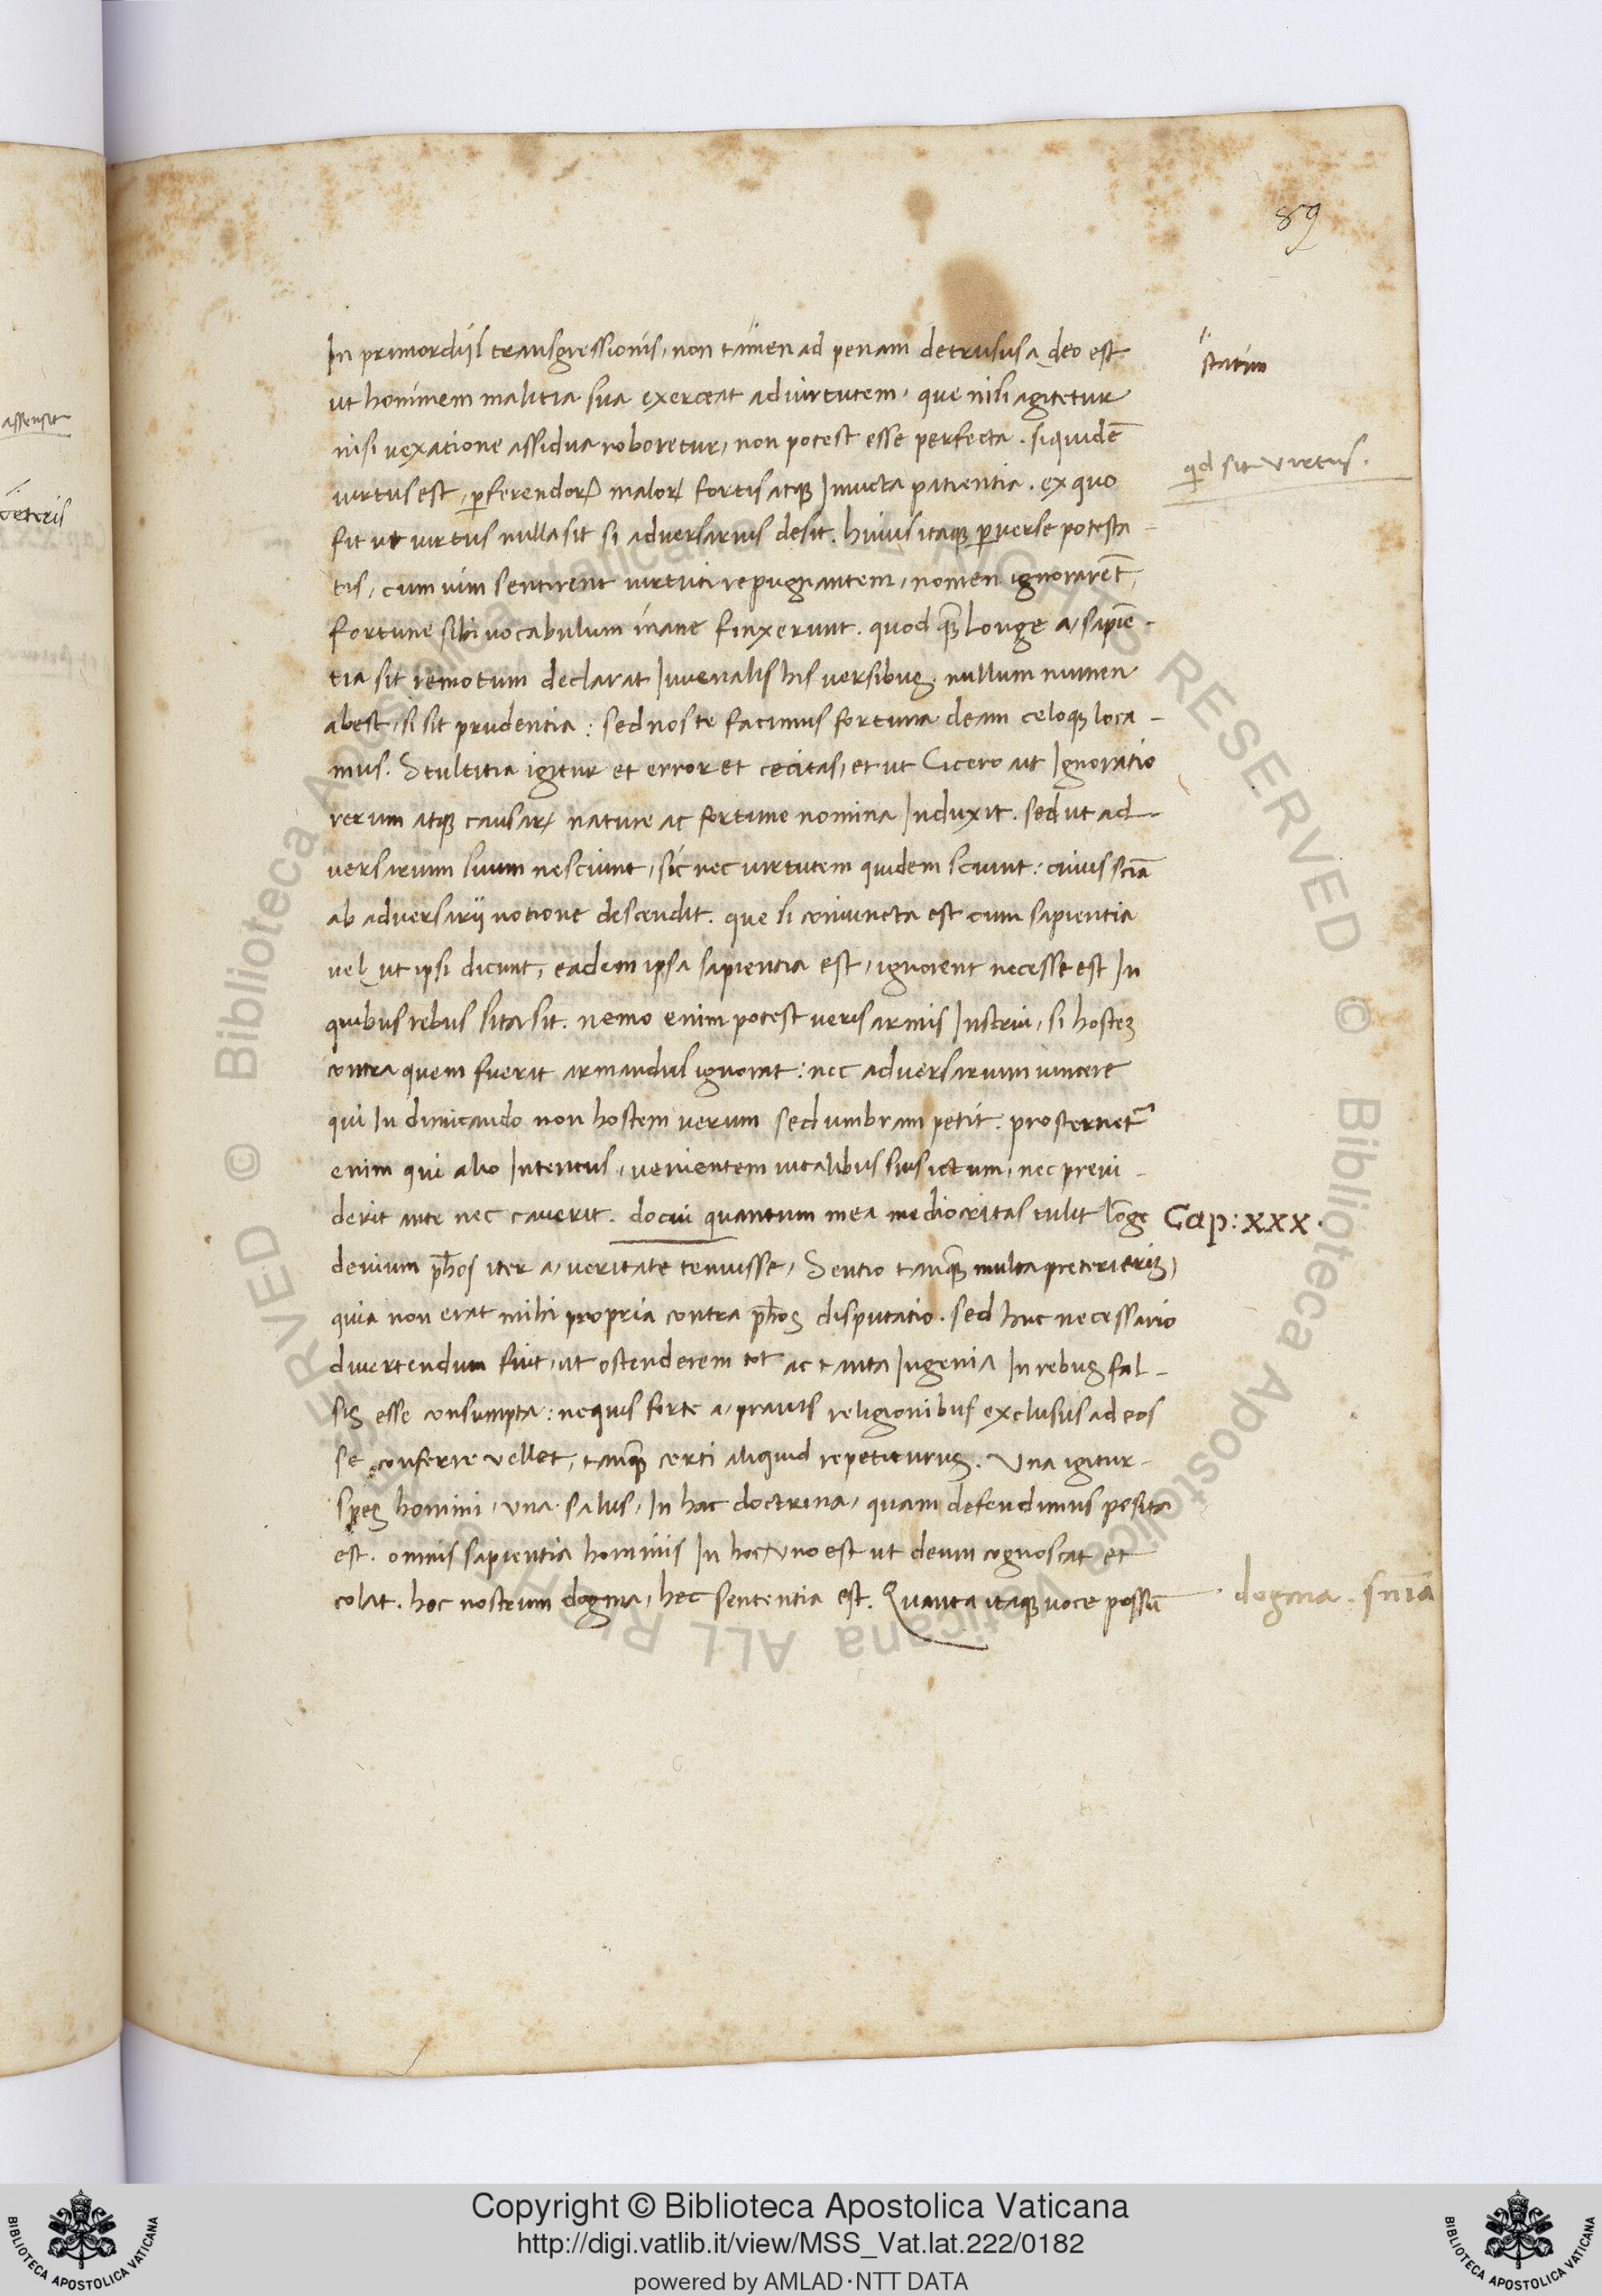 89
In primordijs transgressionis, non tamen ad penam detrusus a deo est
statim
ut hominem malitia sua exerceat ad uirtutem, que nisi agitetur
assensit
nisi uexatione assidua roboretur, non potest esse perfecta. siquidē
qd sit virtus.
uirtus est, ꝑferendoꝝ maloꝝ fortis atqꝫ Inuicta patientia. ex quo
veteris
fit ut uirtus nulla sit si adversarius desit. huius itaqꝫ ꝑverse potesta-
tis, cum uim sentirent uirtuti repugnantem, nomen ignorarēt,
fortune sibi vocabulum inane finxerunt. quod qꝫ longe a, sapiē-
tia sit remotum declarat Iuvenalis his versibus, nullum numen
abest, si sit prudentia: sed nos te facimus fortuna deam celoqꝫ loca-
mus. Stultitia igitur et error et cecitas, et ut Cicero ait Ignoratio
rerum atqꝫ causaꝝ nature ac fortune nomina Induxit. sed ut ad-
versarium suum nesciunt, sic nec uirtutem quidem sciunt: cuius sciā
ab adversarij notione descendit. que si coniuncta est cum sapientia
vel ut ipsi dicunt, eadem ipsa sapientia est, ignorent necesse est In
quibus rebus sita sit. nemo enim potest veris armis Instrui, si hostem
contra quem fuerit armandus ignorat: nec adversarium uincere
qui In dimicando non hostem verum sed umbram petit. prosternet᷑
enim qui alio Intentus, venientem uitalibus suis ictum, nec previ-
derit ante nec caverit. docui quantum mea mediocritas tulit lōge
Cap: XXX.
devium pħos iter a, veritate tenuisse, Sentio tamqꝫ multa preterierim,
quia non erat mihi propria contra pħos disputatio. sed huc necessario
divertendum fuit, ut ostenderem tot ac tanta Ingenia In rebus fal-
sis esse consumpta: nequis forte a, pravis religionibus exclusus ad eos
se conferre vellet, tamqꝫ certi aliquid repetiturus. Una igitur
spes homini, una salus, In hac doctrina, quam defendimus posita
est. omnis sapientia hominis In hoc uno est ut deum cognoscat et
colat. hoc nostrum dogma, hec sententia est. Quanta itaqꝫ voce possū
dogma. snīa
Copyright © Biblioteca Apostolica Vaticana
http://digi.vatlib.it/view/MSS_Vat.lat.222/0182
powered by AMLAD·NTT DATA
BIBLIOTECA APOSTOLICA VATICANA
BIBLIOTECA APOSTOLICA VATICANA
© Biblioteca Apostolica Vaticana ALL RIGHTS RESERVED © Biblioteca Apostolica Vaticana ALL RIGHTS RESERVED